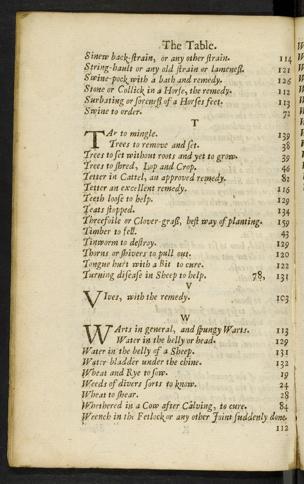 The Table.
Sinew back-ſtrain, or any other ſtrain. 114
String-hault or any old ſtrain or lameneſſ. 121
Swine-pock with a bath and remedy. 126
Stone or Collick in a Horſe, the remedy. 112
Surbating or ſoreneſſ of a Horſes feet. 113
Swine to order. 72
T
TAr to mingle. 139
Trees to remove and ſet. 38
Trees to ſet without roots and yet to grow. 39
Trees to ſhred, Lop and Crop. 46
Tetter in Cattel, an approved remedy. 82
Tetter an excellent remedy. 116
Teeth looſe to help. 129
Teats ſtopped. 134
Threefoile or Clover-graſſ, beſt way of planting. 159
Timber to fell. 43
Tinworm to deſtroy. 129
Thorns or ſhivers to pull out. 120
Tongue hurt with a Bit to cure. 122
Turning diſeaſe in Sheep to help. 78, 131
V
VIves, with the remedy. 103
W
WArts in general, and ſpungy Warts. 113
Water in the belly or head. 129
Water in the belly of a Sheep. 131
Water bladder under the chine. 132
Wheat and Rye to ſow. 19
Weeds of divers ſorts to know. 24
Wheat to ſhear. 28
Whethered in a Cow after Calving, to cure. 84
Wrench in the Fetlock or any other Joint ſuddenly done.
112